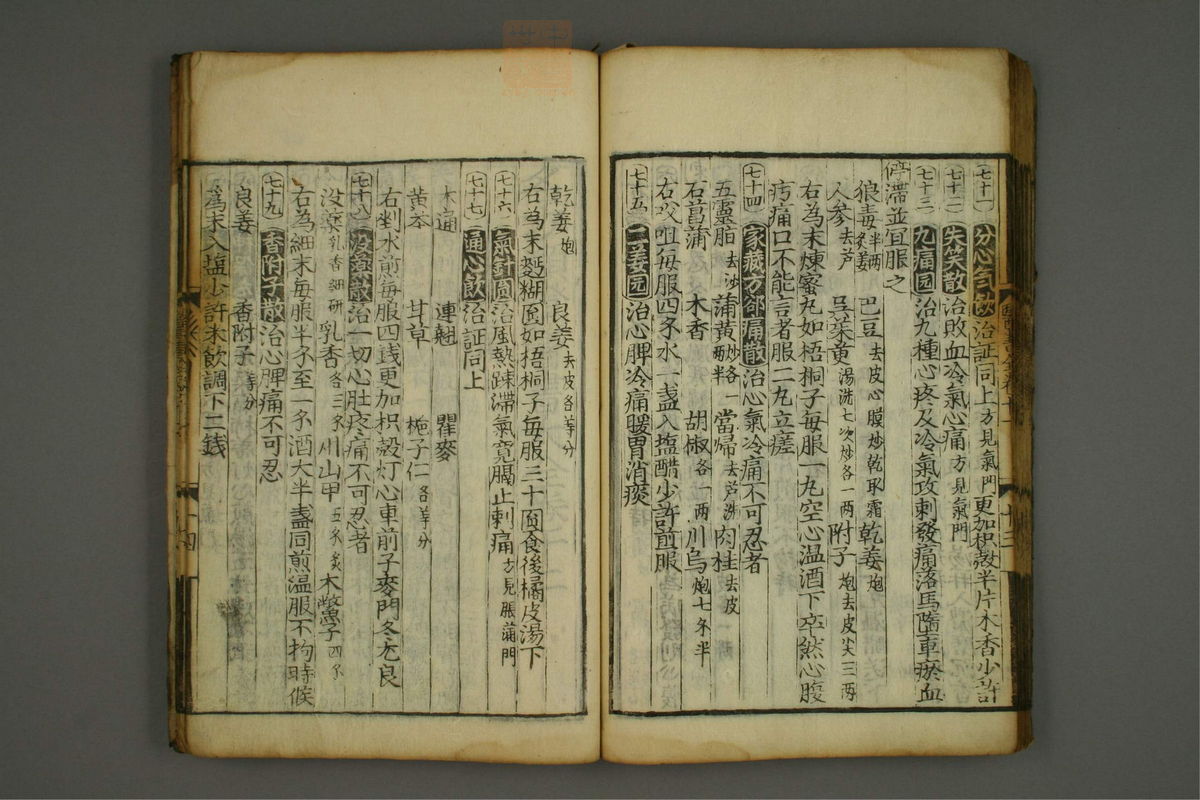 七十一 分心气飲 治証同上 方見氣門 更加枳殼半片木香少許
七十二 失笑散 治敗血冷氣心痛 方見氣門
七十三 九痛园 治九種心疼及冷氣攻刺發痛落馬墮車瘀血
停滯並宜服之
狼毒 半两 炙姜 巴豆 去皮心膜炒乾取霜 乾姜 炮
人参 去芦 吳茱萸 湯洗七次炒各一两 附子 炮去皮尖三两
右為末煉蜜丸如梧桐子每服一丸空心温酒下卒然心腹
疞痛口不能言者服二丸立瘥
七十四 家藏方郤痛散 治心氣冷痛不可忍者
五靈脂 去沙 蒲黄 炒各一两半 當歸 去芦洗 肉桂 去皮
石菖蒲 木香 胡椒 各一两 川乌 炮七个半
右㕮咀每服四个水一盏入塩醋少許煎服
七十五 二姜园 治心脾冷痛暖胃消痰
乾姜 炮 良姜 去皮各等分
右為末麪糊圎如梧桐子每服三十圎食後橘皮湯下
七十六 氣針圎 治風熱踈滯氣寛膈止刺痛 方見脹蒲門
七十七 通心飲 治証同上
木通 連翹 瞿麥
黄芩 甘草 梔子仁 各等分
右剉水煎每服四銭更加枳殼灯心車前子麥門冬尤良
七十八 没藥散 治一切心肚疼痛不可忍者
没藥 乳香 細研 乳香 各三个 川山甲 五个炙 木鱉子 四个
右為細末每服半个至一个酒大半盞同煎温服不拘時候
七十九 香附子散 治心脾痛不可忍
良姜 香附子 等分
為末入塩少許米飲調下二銭